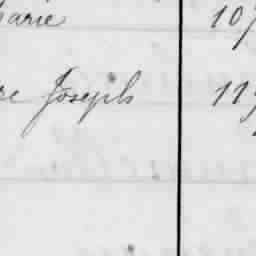 arie 107
re Joseph 119